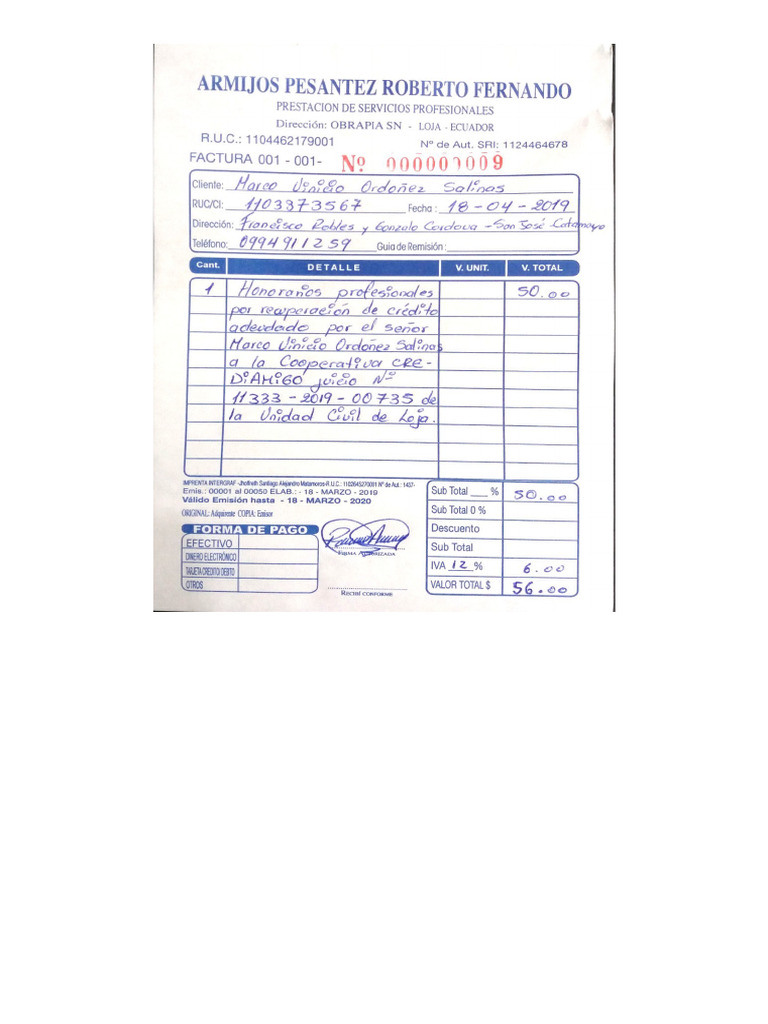 ARMIJOS PESANTEZ ROBERTO FERNANDO
PRESTACION DE SERVICIOS PROFESIONALES
Dirección: OBRAPIA SN - LOJA - ECUADOR
R.U.C.: 1104462179001 Nº de Aut. SRI: 1124464678
FACTURA 001 - 001- Nº 000000009
Cliente: Marco Vinicio Ordoñez Salinas
RUC/CI: 1103373567 Fecha : 18-04-2019
Dirección: Francisco Robles y Gonzalo Cordova - San José Catamayo
Teléfono: 0994911259 Guia de Remisión :
Cant. DETALLE V. UNIT. V. TOTAL
1 Honorarios profesionales 50.00
por recuperación de crédito
adeudado por el señor
Marco Vinicio Ordoñez Salinas
a la Cooperativa CRE-
DIAMIGO juicio Nº
11333-2019-00735 de
la Unidad Civil de Loja.
IMPRENTA INTERGRAF -Jhofreth Santiago Alejandro Matamoros-R.U.C.: 1102645270001 Nº de Aut.: 1437-
Emis.: 00001 al 00050 ELAB.: - 18 - MARZO - 2019
Válido Emisión hasta - 18 - MARZO - 2020
ORIGINAL: Adquirente COPIA: Emisor
FORMA DE PAGO
EFECTIVO
DINERO ELECTRÓNICO
TARJETA CREDITO/DEBITO
OTROS
FIRMA AUTORIZADA
Recibí CONFORME
Sub Total ___ % 50.00
Sub Total 0 %
Descuento
Sub Total
IVA 12 % 6.00
VALOR TOTAL $ 56.00